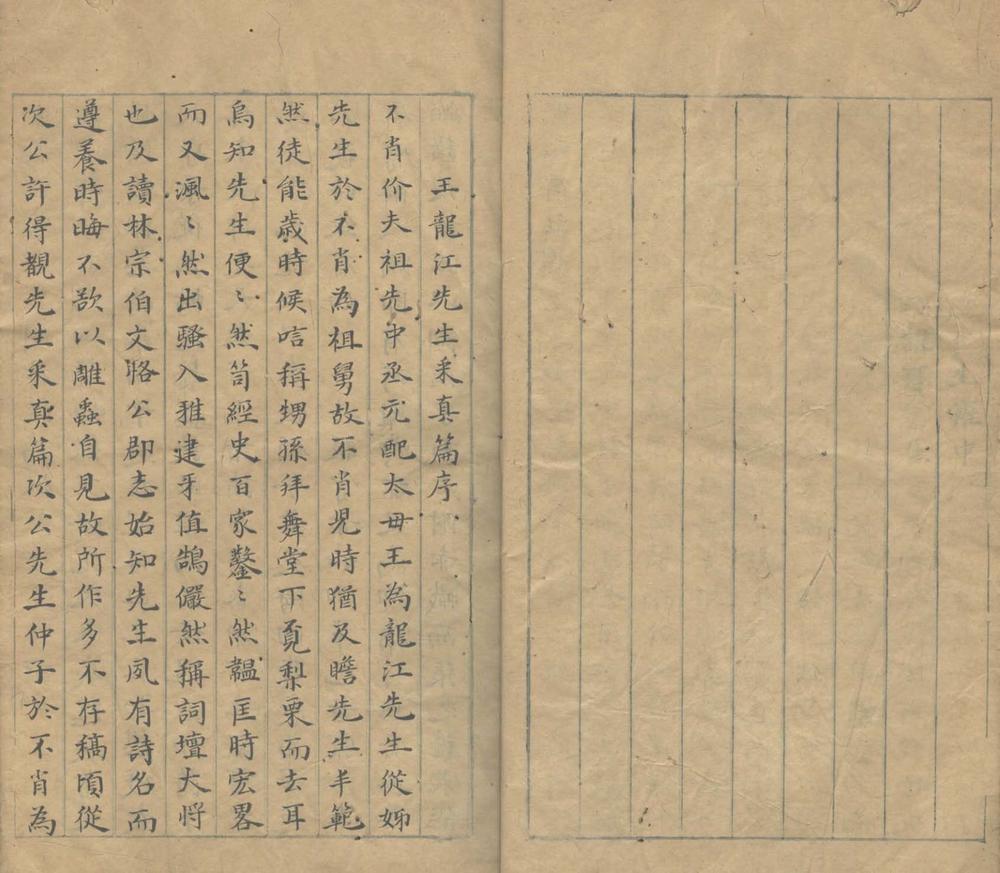 王龍江先生采真篇序
不肖价夫祖先中丞元配太母王為龍江先生從姊
先生於不肖為祖舅故不肖兒時猶及瞻先生丰範
然徒能歲時候唁稱甥孫拜舞堂下覔梨栗而去耳
烏知先生便〻然笥經史百家鑿〻然韞匡時宏畧
而又渢〻然出騷入雅建牙值鵠儼然稱詞壇大將
也及讀林宗伯文恪公郡志始知先生夙有詩名而
遵養時晦不欲以雕蟲自見故所作多不存稿頃從
次公許得覩先生采真篇次公先生仲子於不肖為